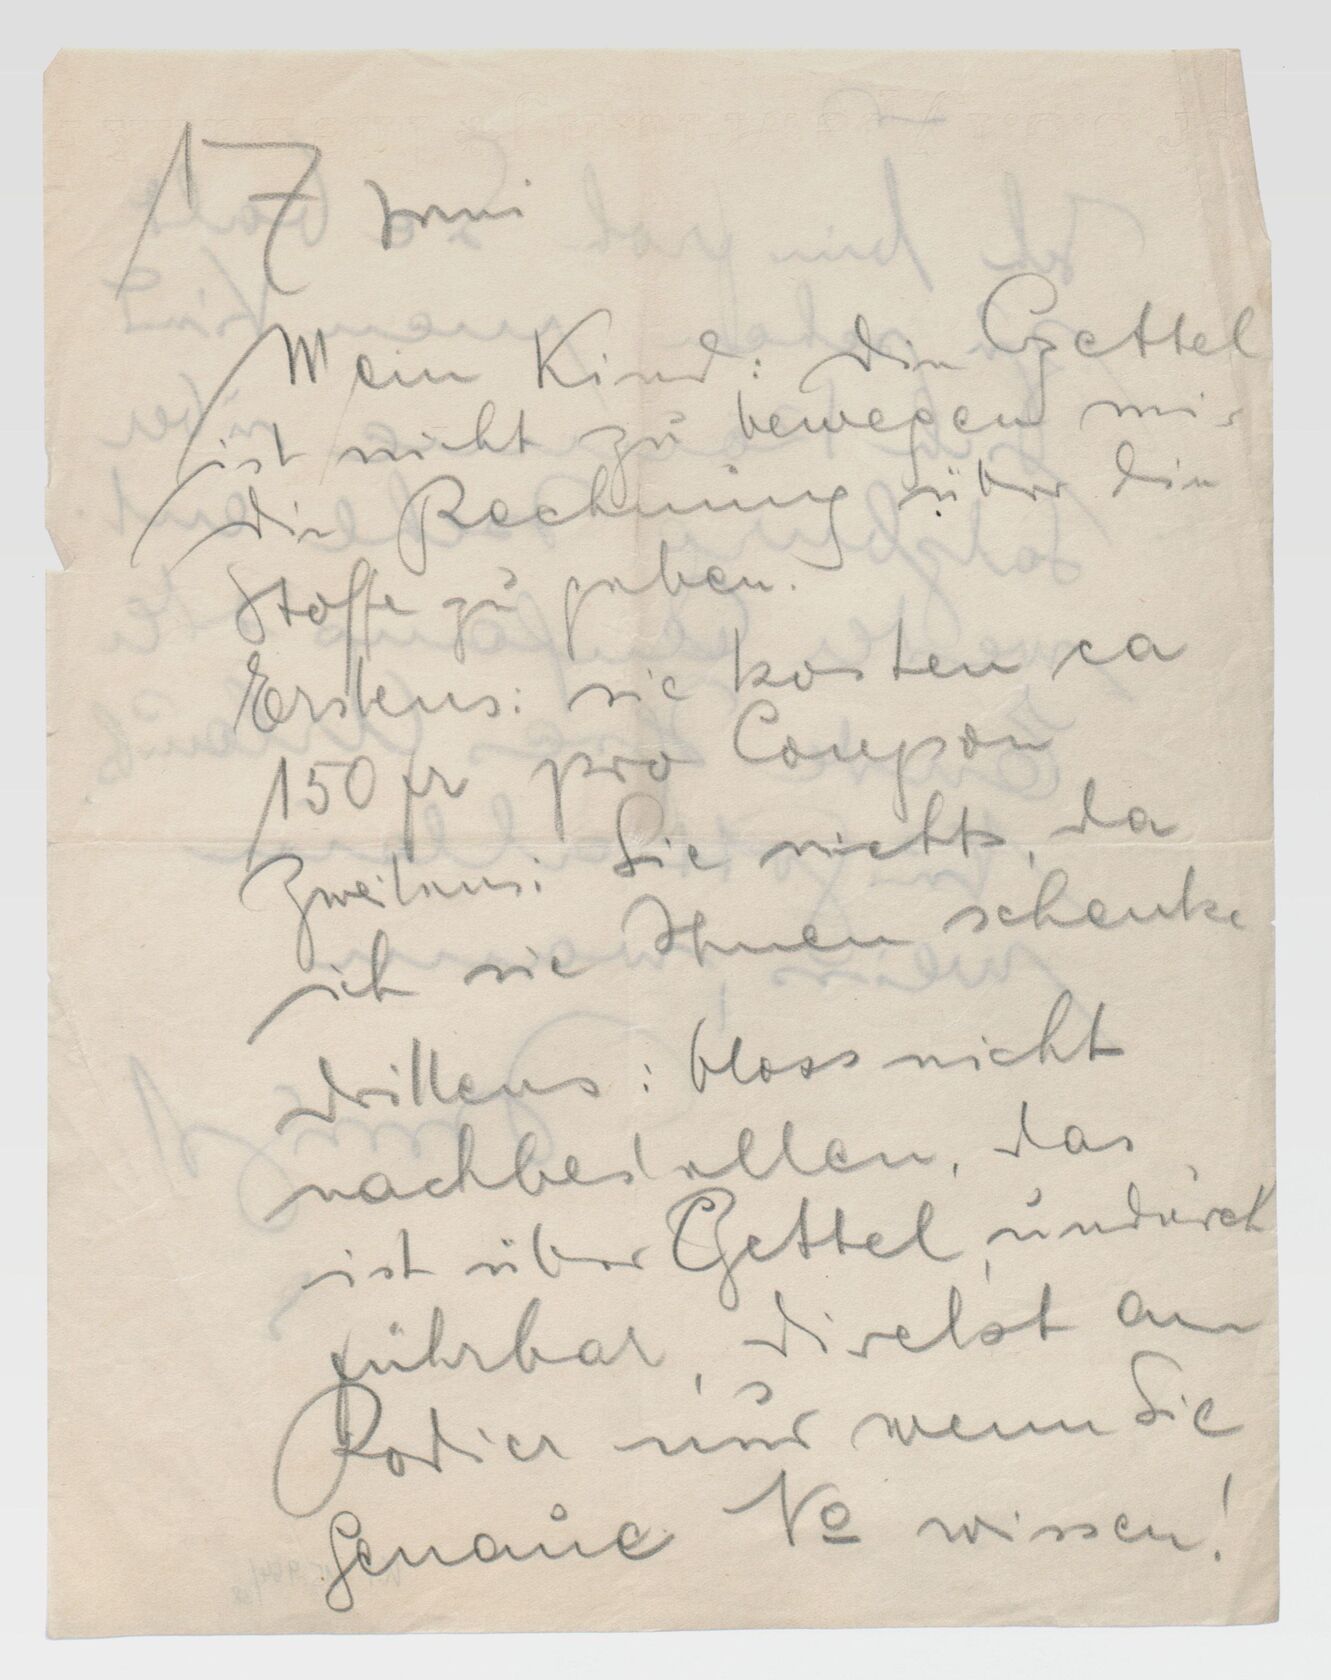 17 Juni
Mein Kind: die Gettel
ist nicht zu bewegen mir
die Rechnung über die
Stoffe zu geben.
Erstens: sie kosten ca
150 fr pro Coupon
Zweitens: Sie nichts, da
ich sie Ihnen schenke
drittens: bloss nicht
nachbestellen, das
ist über Gettel, undurch
führbar, direkt an
Rodier nur wenn Sie
Genaue No wissen!